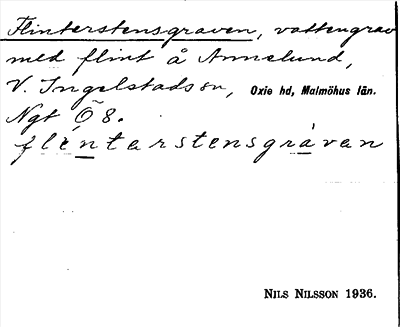 Flinterstensgraven, vattengrav
med flint å Annelund,
V. Ingelstads sn, Oxie hd, Malmöhus län.
Ngt Ö 8.
flènterstensgràven
NILS NILSSON 1936.